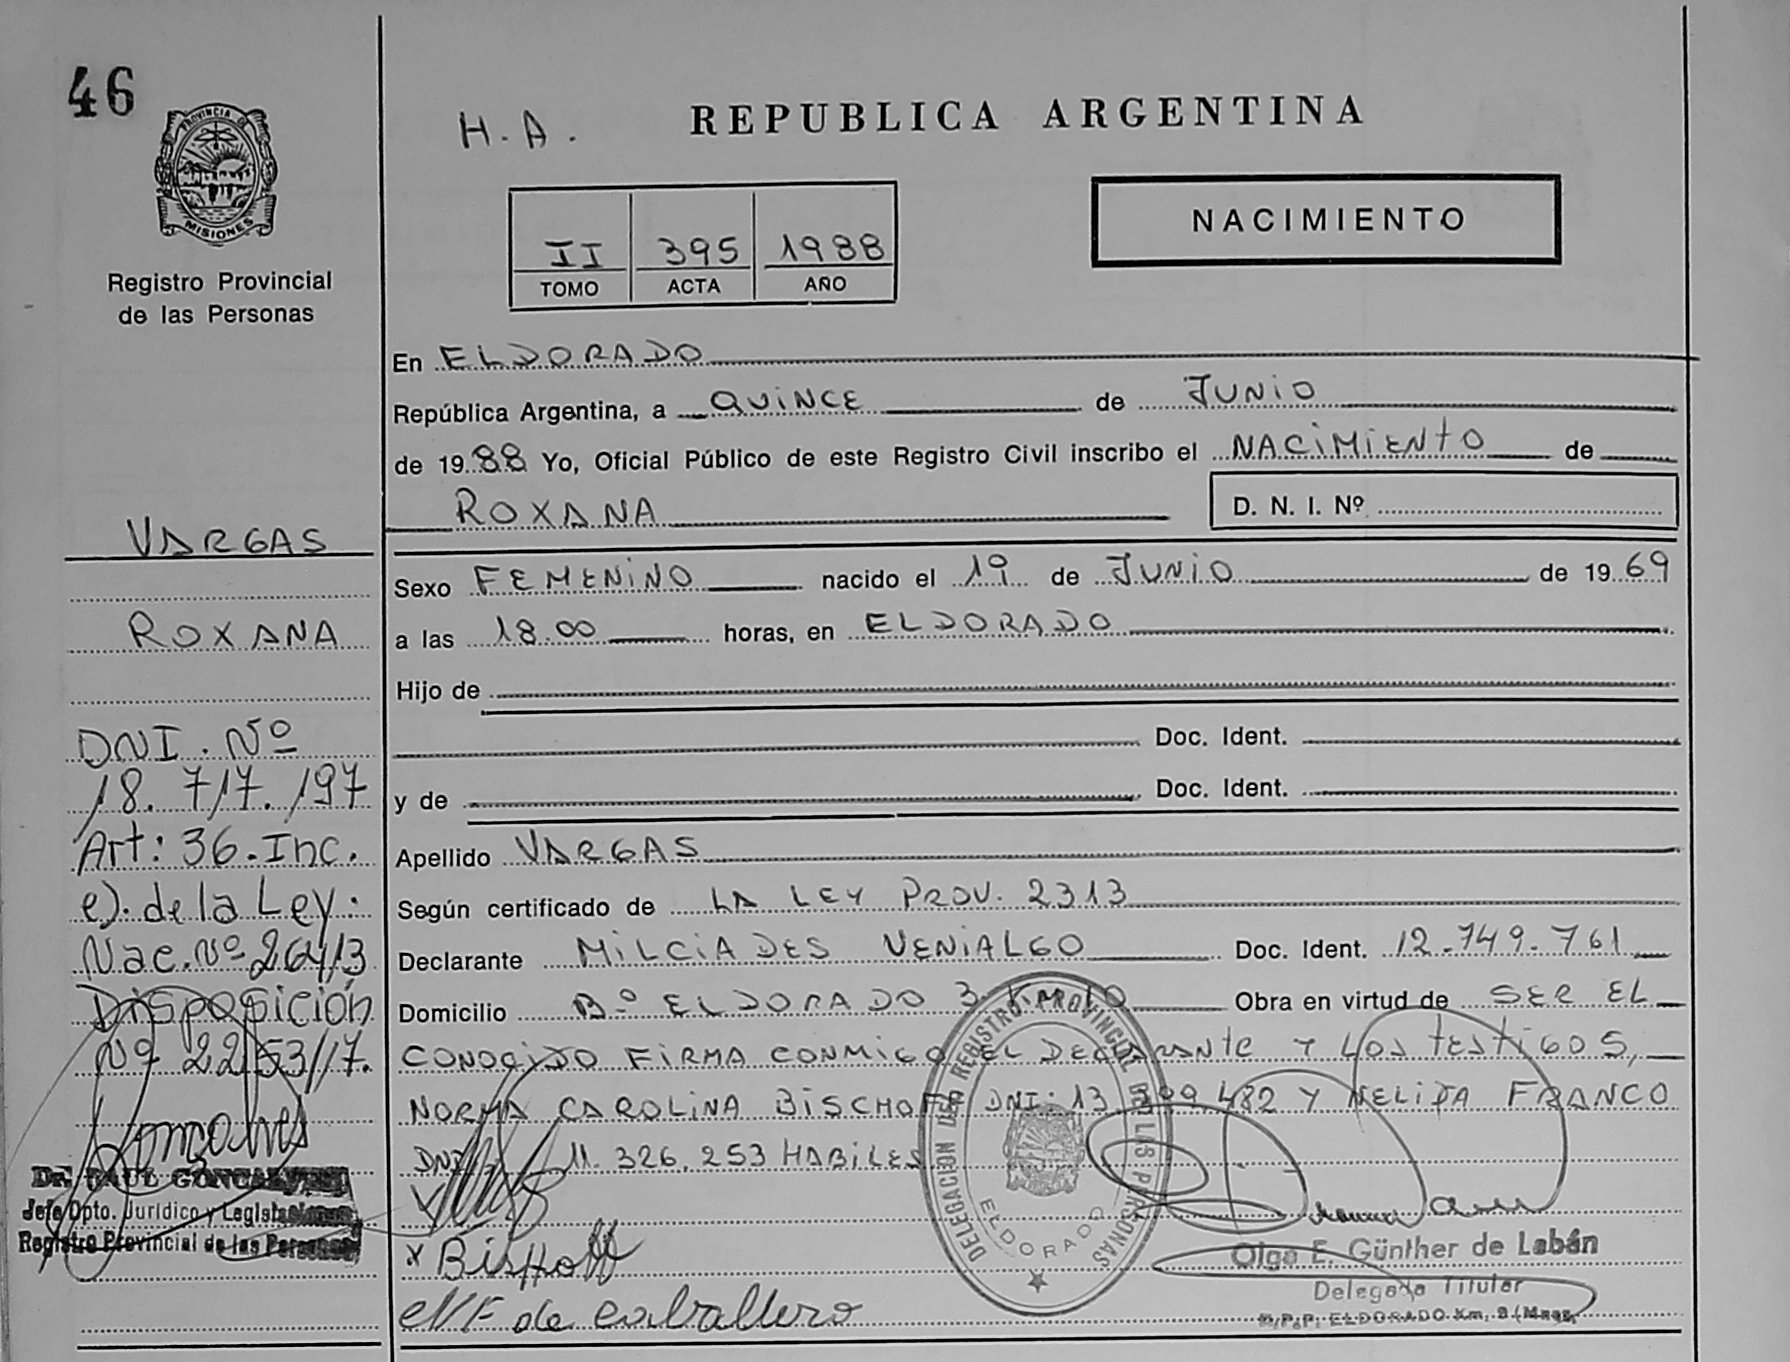 46
PROVINCIA D
MISIONES
Registro Provincial
de las Personas
VARGAS
ROXANA
DNI. Nº
18.717.197
Art: 36.Inc.
e). de la Ley.
Nac. Nº 26413
Disposición
Nº 2253/17.
Jefe Dpto. Jurídico y
Registro Provincial de las Personas
H.A.
REPUBLICA ARGENTINA
II 395 1988
TOMO ACTA AÑO
NACIMIENTO
En ELDORADO
República Argentina, a QUINCE de JUNIO
de 1988 Yo, Oficial Público de este Registro Civil inscribo el NACIMIENTO de
ROXANA D. N. I. Nº
Sexo FEMENINO nacido el 19 de JUNIO de 1969
a las 18.00 horas, en ELDORADO
Hijo de
Doc. Ident.
y de Doc. Ident.
Apellido VARGAS
Según certificado de LA LEY PROV. 2313
Declarante MILCIADES VENIALGO Doc. Ident. 12.749.761
Domicilio Bº ELDORADO 3 Obra en virtud de SER EL
CONOCIDO FIRMA CONMIGO EL DECLARANTE Y LOS TESTIGOS,
NORMA CAROLINA BISCHOFF DNI: 13 482 Y NELIDA FRANCO
DNI 11.326.253 HABILES
x Bischoff
de caballero
DELEGACION DEL REGISTRO PROVINCIAL DE LAS PERSONAS
ELDORADO
Olga E. Günther de Labán
Delegada Titular